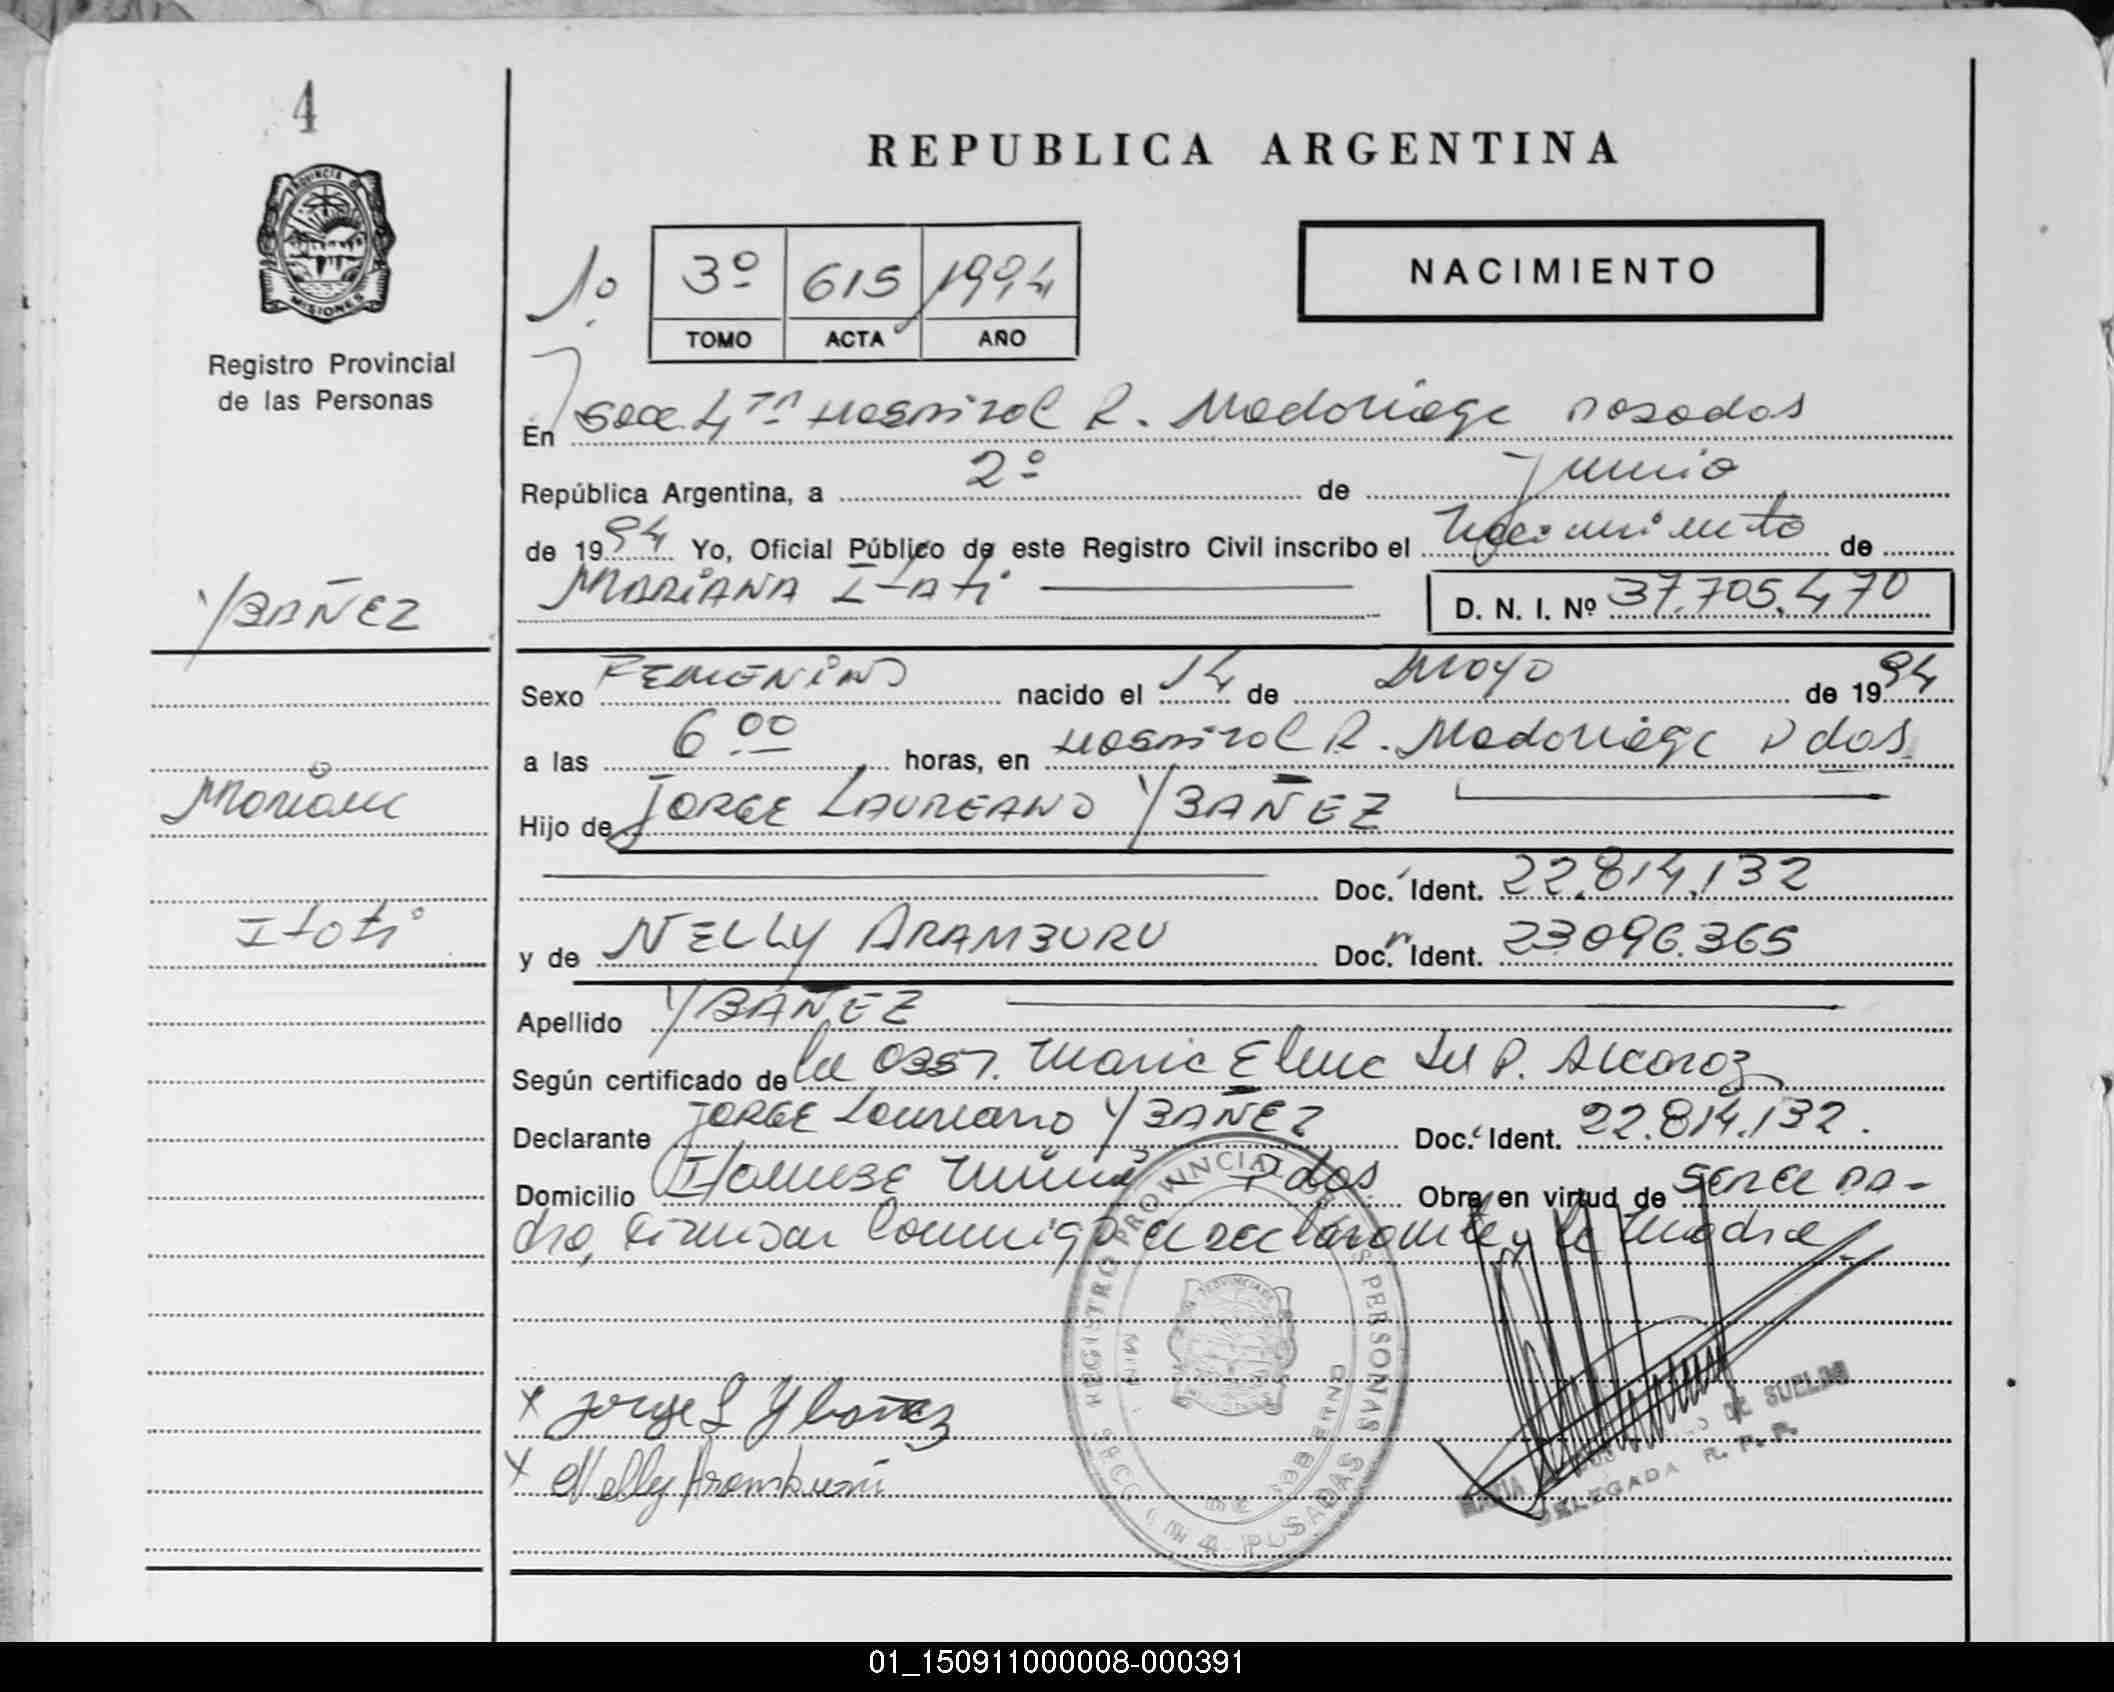 4
PROVINCIA D
MISIONES
Registro Provincial
de las Personas
REPUBLICA ARGENTINA
1º
3º 615 1994
TOMO ACTA AÑO
NACIMIENTO
En Secc. 4ta Hospital R. Madariaga Posadas
República Argentina, a 2º de Junio
de 1994 Yo, Oficial Público de este Registro Civil inscribo el Nacimiento de
MARIANA Itati
D. N. I. Nº 37.705.470
YBAÑEZ
Mariana
Itati
Sexo FEMENINO nacido el 14 de Mayo de 1994
a las 6 00 horas, en Hospital R. Madariaga Pdas
Hijo de JORGE LAUREANO YBAÑEZ
Doc. Ident. 22.814.132
y de NELLY ARAMBURU Doc. Ident. 23.096.365
Apellido YBAÑEZ
Según certificado de la Obst. Maria Elena del P. Alcaraz
Declarante JORGE Laureano YBAÑEZ Doc. Ident. 22.814.132.
Domicilio Itaembe Mini Pdas Obra en virtud de ser el pa-
dre, Firman Conmigo el declarante y la Madre
x Jorge L Ybañez
x Nelly Aramburu
REGISTRO PROVINCIAL DE LAS PERSONAS
SECC 4 POSADAS
DE GOBIERNO
DE SUELDO
DELEGADA R. P. P.
01_150911000008-000391